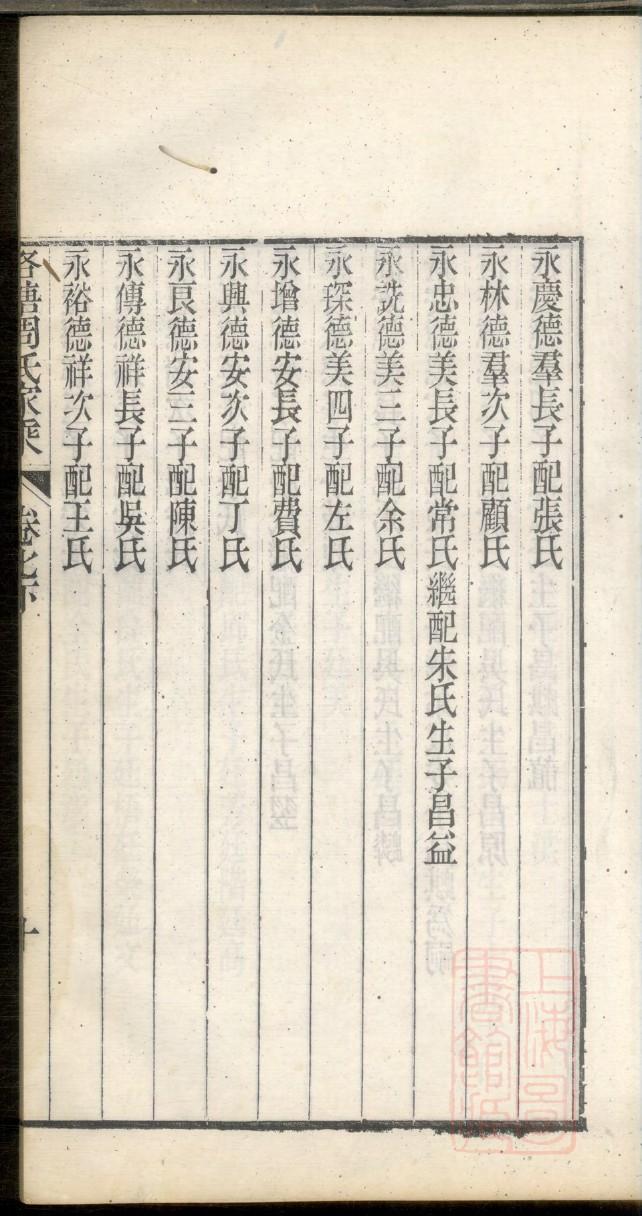 永慶德羣長子配張氏
永林德羣次子配顧氏
永忠德美長子配常氏繼配朱氏生子昌益
永詵德美三子配余氏
永琛德美四子配左氏
永增德安長子配費氏
永興德安次子配丁氏
永良德安三子配陳氏
永傳德祥長子配吳氏
永裕德祥次子配王氏
塘周氏家乘 卷之下 十
上海圖書館藏